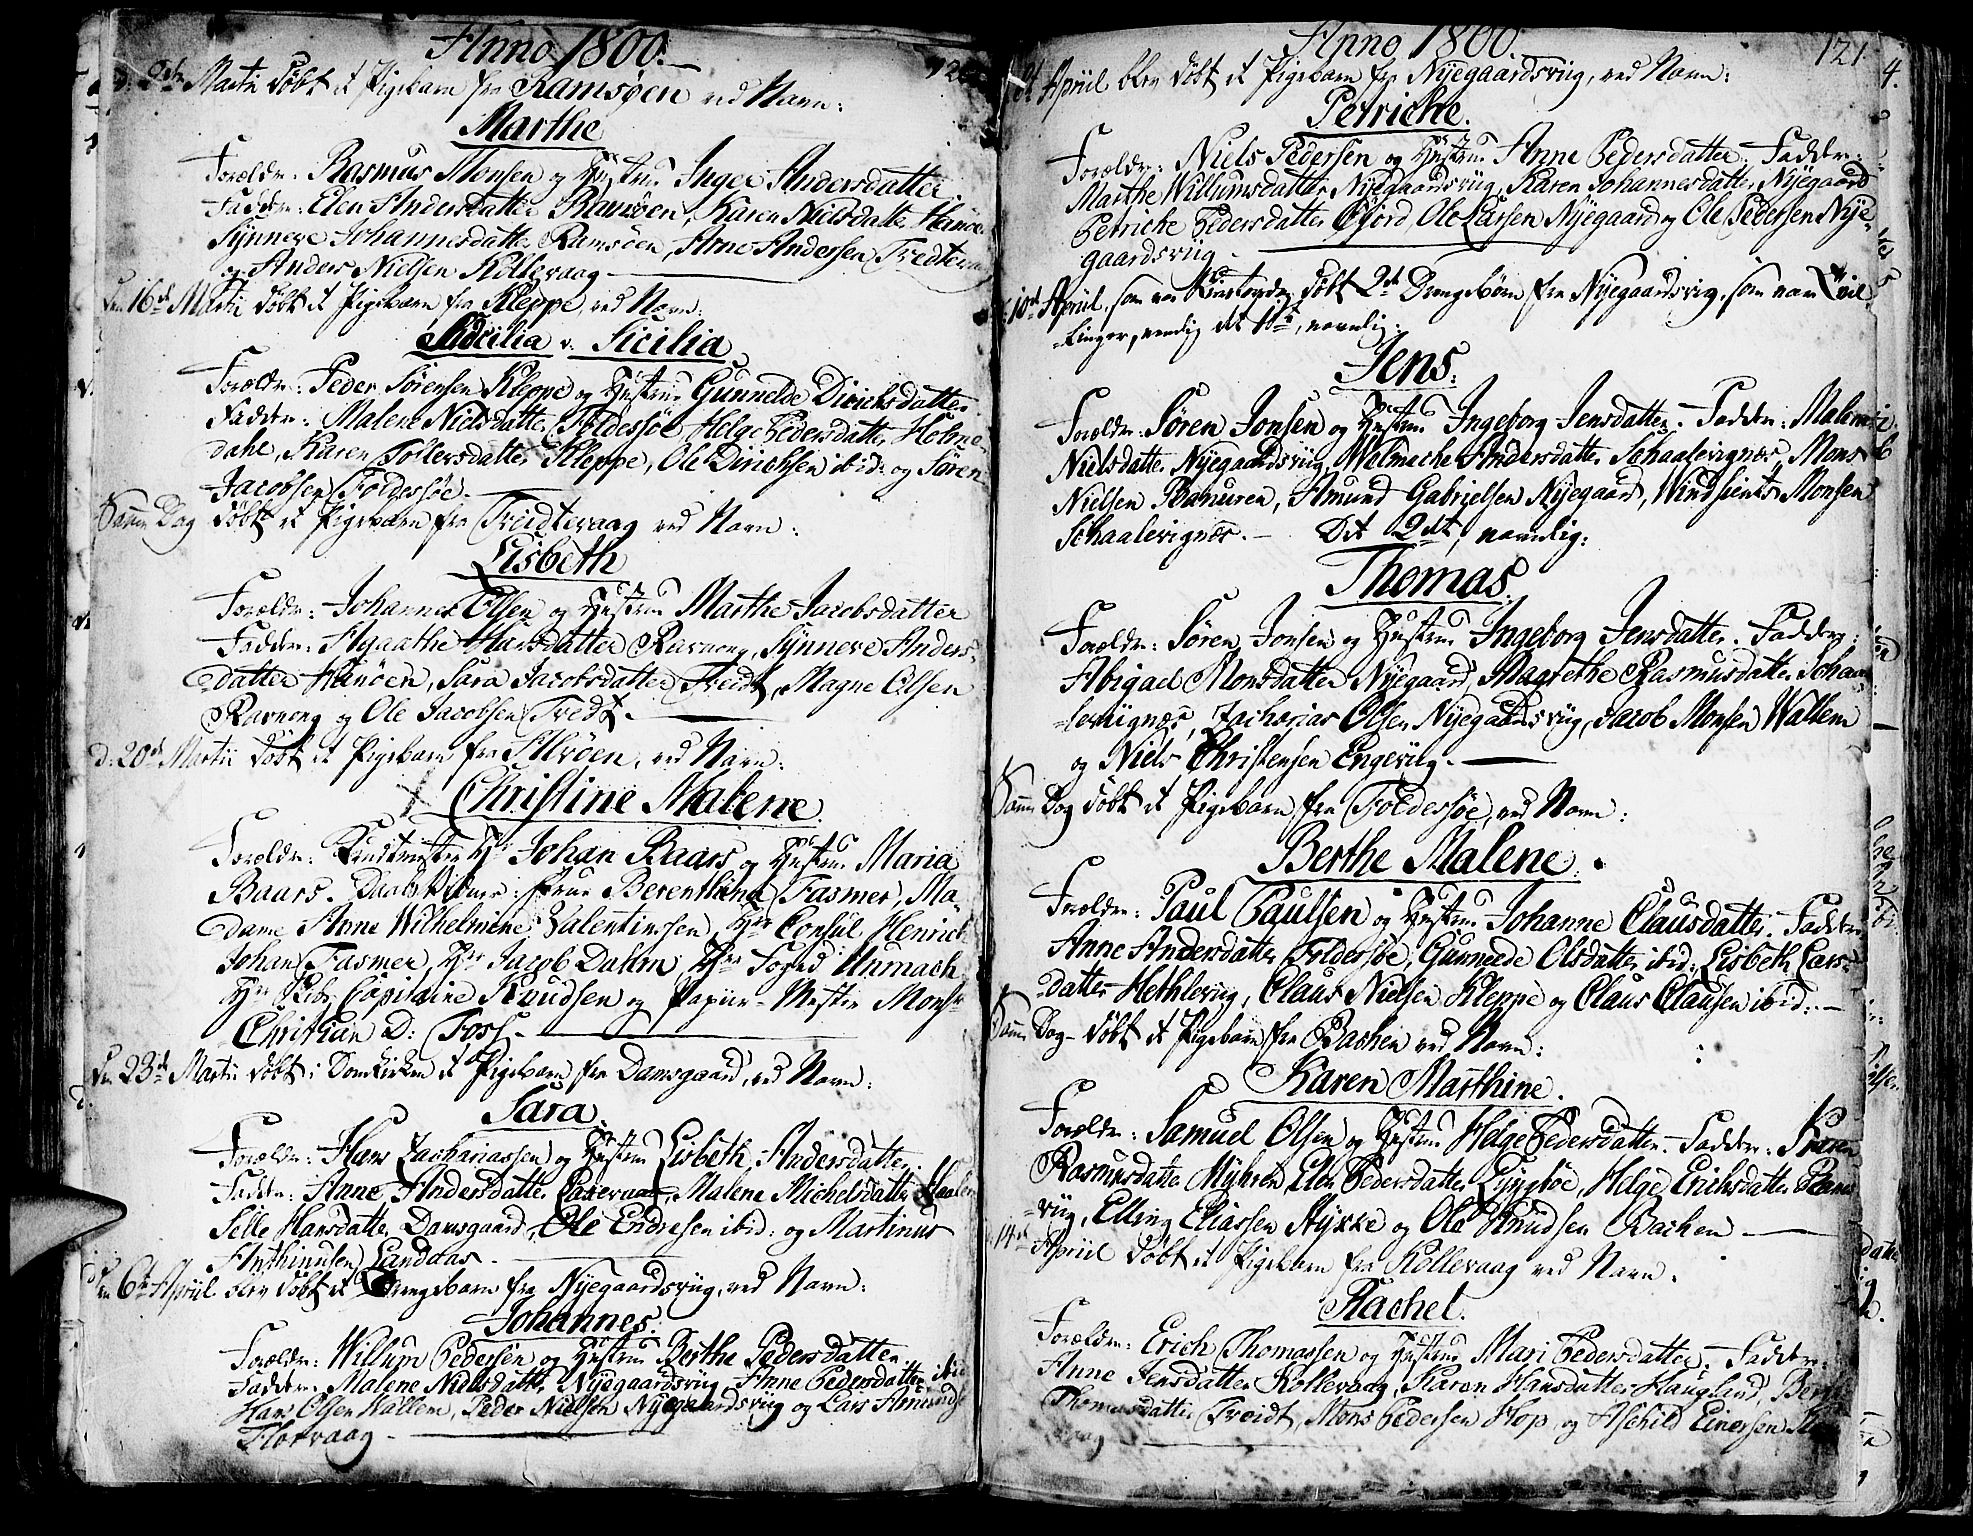 Anno 1800.
Martii döbt et Pigebarn fra Ramsøen ved Navn:
Marthe
Forældr: Rasmus Monsen og Hustrue Inger Andersdatter
Faddr: Elen Andersdatter Ramsøen, Karen Nielsdatter Hanøe
Synneve Johannesdatter Ramsøen, Arne Andersen Tredtevaag
og Anders Nielsen Kollevaag
den 16de Martii döbt et Pigebarn fra Kleppe, ved Navn:
Sicilia
Forældr: Peder Sørensen Kleppe og Hustrue Gunnelde Dirichsdatter
Faddr: Malene Nielsdatter Foldessøe, Helge Pedersdatter Holme
dahl, Karen Tollersdatter Kleppe, Ole Dirichsen ibid: og Søren
Jacobsen Foldessøe.
Samme Dag döbt et Pigebarn fra Treidtevaag ved Navn:
Lisbeth
Forældr: Johannes Olsen og Hustrue Marthe Jacobsdatter
Faddr: Agaathe Hansdatter Ravnong, Synneve Anders-
datter Hanøen, Sara Jacobsdatter Treidt, Magne Olsen
Ravnong og Ole Jacobsen Tredt.
d: 20de Martii döbt et Pigebarn fra Alvøen, ved Navn:
Christine Malene.
Forældr: Hr Johan Baars og Hustrue Maria
Baars. Frue Berenthine Fasmer, Ma-
dame Anne Wilhelmine Valentinsen, Hr Consul Henrich
Johan Fasmer, Hr Jacob Dahm, Hr Foged Unmach
Hr Capitaine Knudsen og Papiir-Mester Monsr
Christian D: Foss.
den 23de Martii döbt i Domkirken et Pigebarn fra Damsgaard, ved Navn:
Sara.
Forældr: Hans Zachariassen og Hustrue Lisbeth Andersdatter.
Faddr: Anne Andersdatter, Malene Michelsdatter
Selle Hansdatter Damsgaard, Ole Endresen ibid: og Martinus
Anthinusen Landaas.
den 6te Apriil blev döbt et Drengebarn fra Nyegaardsviig, ved Navn:
Johannes.
Forældr: Willum Pedersen og Hustrue Berthe Pedersdatter.
Faddr: Malene Nielsdatter Nyegaardsviig, Anne Pedersdatter ibid
Hans Olsen Wallem, Peder Nielsen Nyegaardsviig og Lars Amunds
Florvaag
Anno 1800.
121.
Apriil blev döbt et Pigebarn fra Nyegaardsviig, ved Navn:
Petriche.
Forældr: Niels Pedersen og Hustrue Anne Pedersdatter. Faddr:
Marthe Willumsdatter Nyegaardsviig, Karen Johannesdatter Nyegaard
Petriche Pedersdatter, Ole Larsen Nyegaard og Ole Pedersen Nye-
gaardsviig
10de Apriil, som var döbt 2de Drengebørn fra Nyegaardsvig, som var Tvil-
linger, nemlig det 1ste, navnlig:
Jens.
Forældr: Søren Jonsen og Hustrue Ingeborg Jensdatter. Faddr: Malene
Nielsdatter Nyegaardsviig, Welmeche Andersdatter Schaalevignæs, Mons
Nielsen Ramuren, Amund Gabrielsen Nyegaard, Windsients Monsen
Schaalevignæs. Det 2det, navnlig:
Thomas.
Forældr: Søren Jonsen og Hustrue Ingeborg Jensdatter. Faddr:
Abigael Monsdatter Nyegaard, Magrethe Rasmusdatter Schaa-
levignæs, Zacharias Olsen Nyegaardsviig, Jacob Monsen Wallem
og Niels Christensen Engeviig.
Samme Dag döbt et Pigebarn fra Foldessøe, ved Navn:
Berthe Malene.
Forældr: Paul Paulsen og Hustrue Johanne Clausdatter. Faddr:
Anne Andersdatter Foldessøe, Gunnilde Olsdatter ibid: Lisbeth Lars-
datter Hethleviig, Claus Nielsen Kleppe og Claus Clausen ibid:
Samme Dag döbt et Pigebarn fra Bachen ved Navn:
Karen Marthine.
Forældr: Samuel Olsen og Hustrue Helge Pedersdatter. Faddr: Karen
Rasmusdatter Myhren, Elen Pedersdatter Lyngbøe, Helge Erichsdatter Ram-
viig, Elling Eliassen Stykke og Ole Knudsen Bachen
14de Apriil döbt et Pigebarn fra Kollevaag ved Navn.
Rachel.
Forældr: Erich Thomassen og Hustrue Mari Pedersdatter. Faddr:
Anne Jensdatter Kollevaag, Karen Hansdatter Haugland, Berthe
Thomasdatter Treidt, Mons Pedersen Hop, og Aschild Einersen
vaag